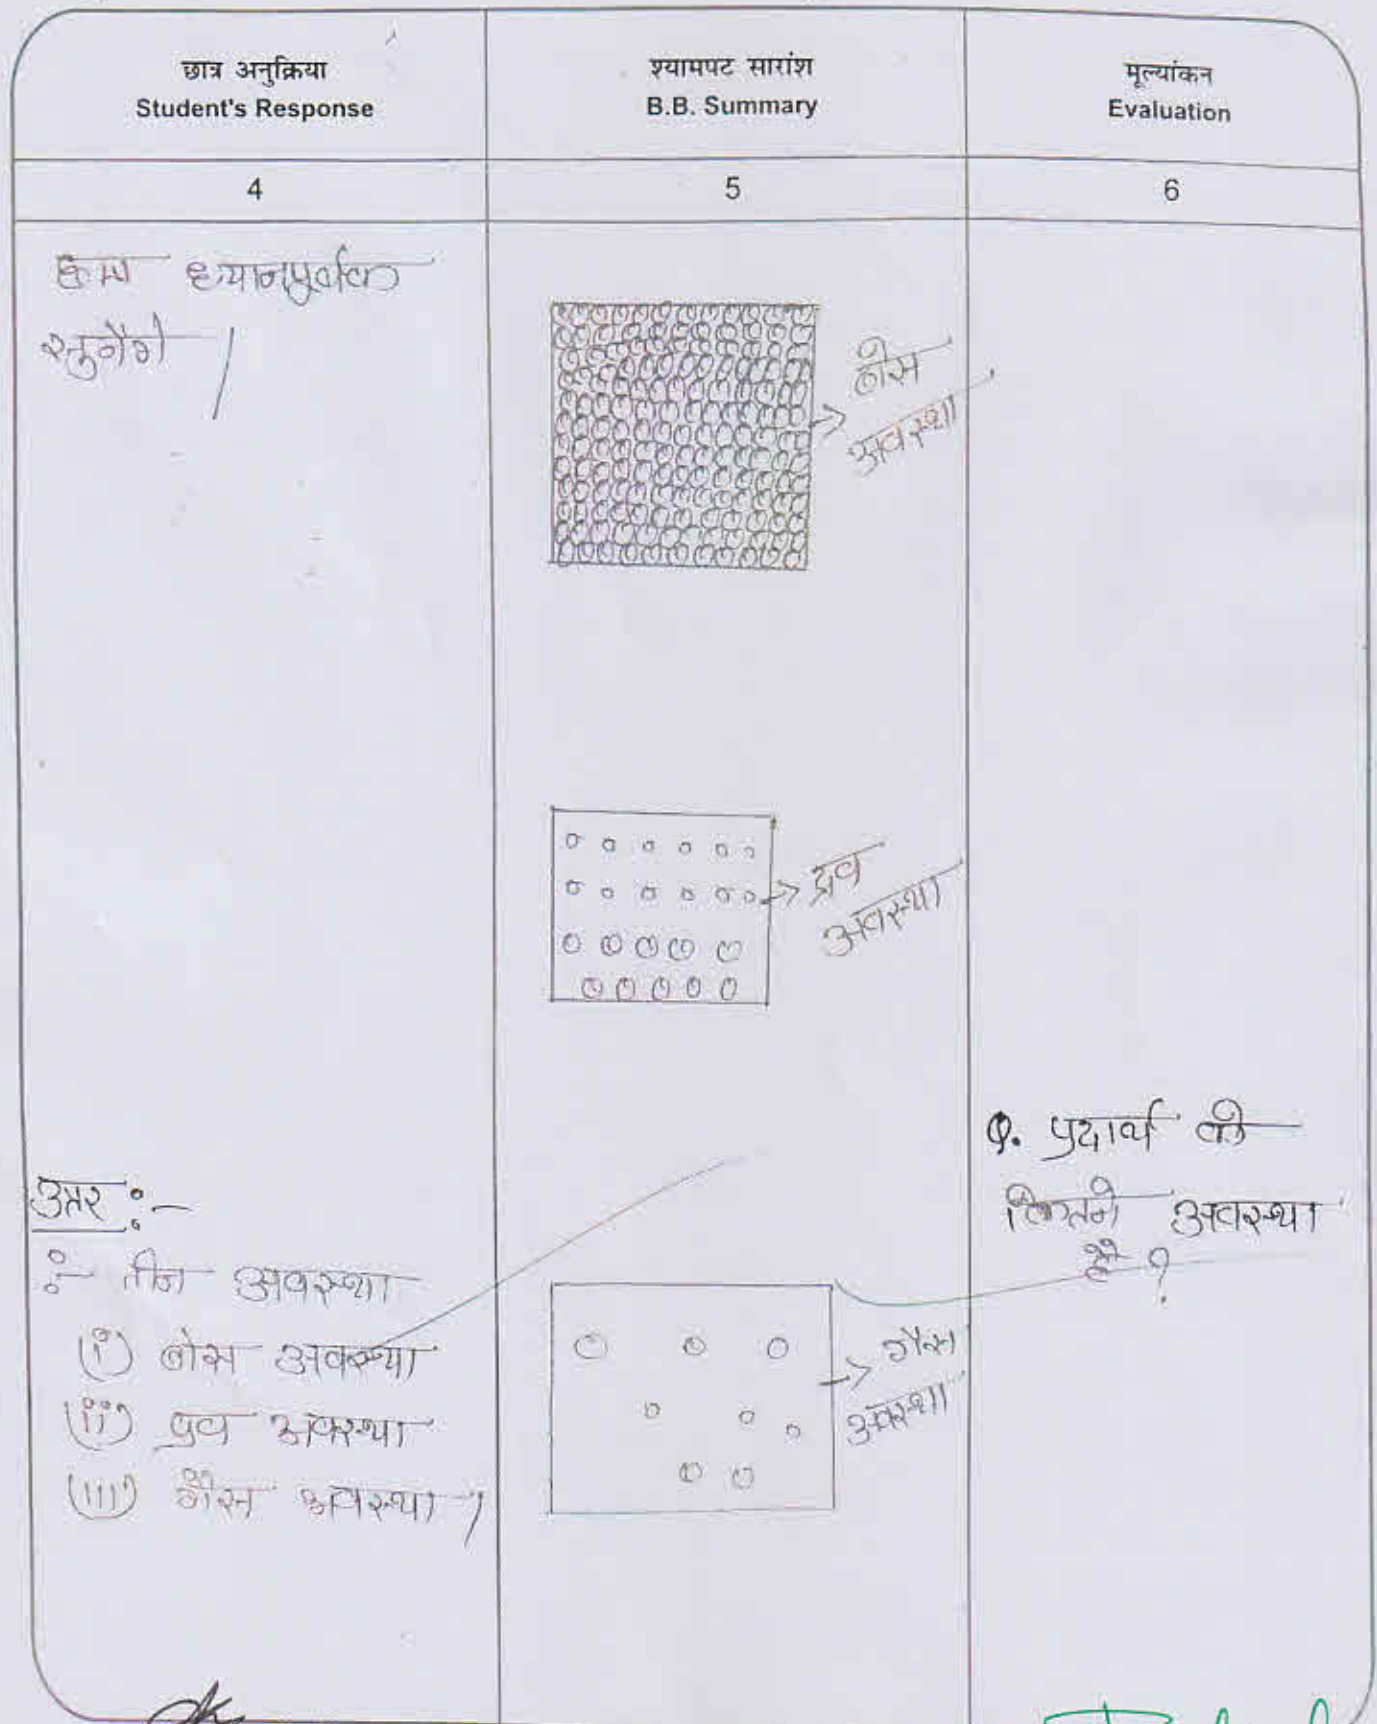 छात्र अनुक्रिया
Student's Response
श्यामपट सारांश
B.B. Summary
मूल्यांकन
Evaluation
4
5
6
छात्र ध्यानपूर्वक
सुनेंगे।
ठोस
अवस्था
द्रव
अवस्था
उत्तर :-
:- तीन अवस्था
(i) ठोस अवस्था
(ii) द्रव अवस्था
(iii) गैस अवस्था।
गैस
अवस्था
Q. पदार्थ की
कितने अवस्था
है ?